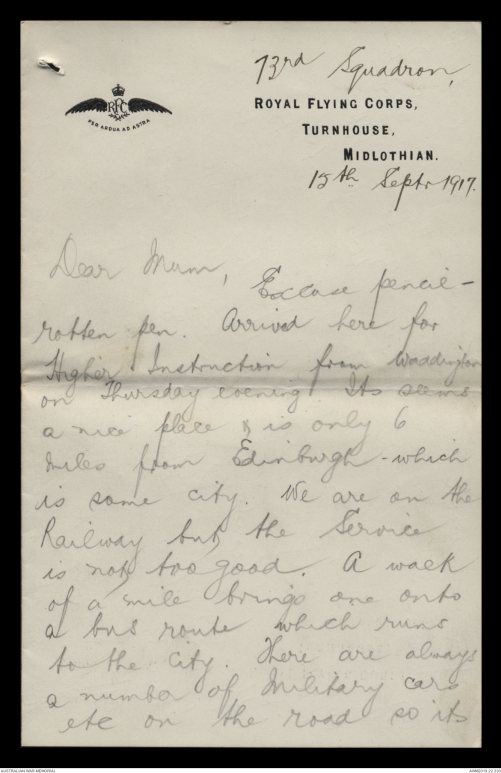 73rd Squadron,
RFC
PER ARDUA AD ASTRA
ROYAL FLYING CORPS,
TURNHOUSE,
MIDLOTHIAN.
15th Septr 1917.
Dear Mum,
Excuse pencil -
rotten pen. Arrived here for
Higher Instruction from Waddington
on Thursday evening. Its seems
a nice place & is only 6
miles from Edinburgh - which
is some city. We are on the
Railway but the Service
is not too good. A walk
of a mile brings one onto
a bus route which runs
to the City. There are always
a number of Military cars
etc on the road so its
AUSTRALIAN WAR MEMORIAL